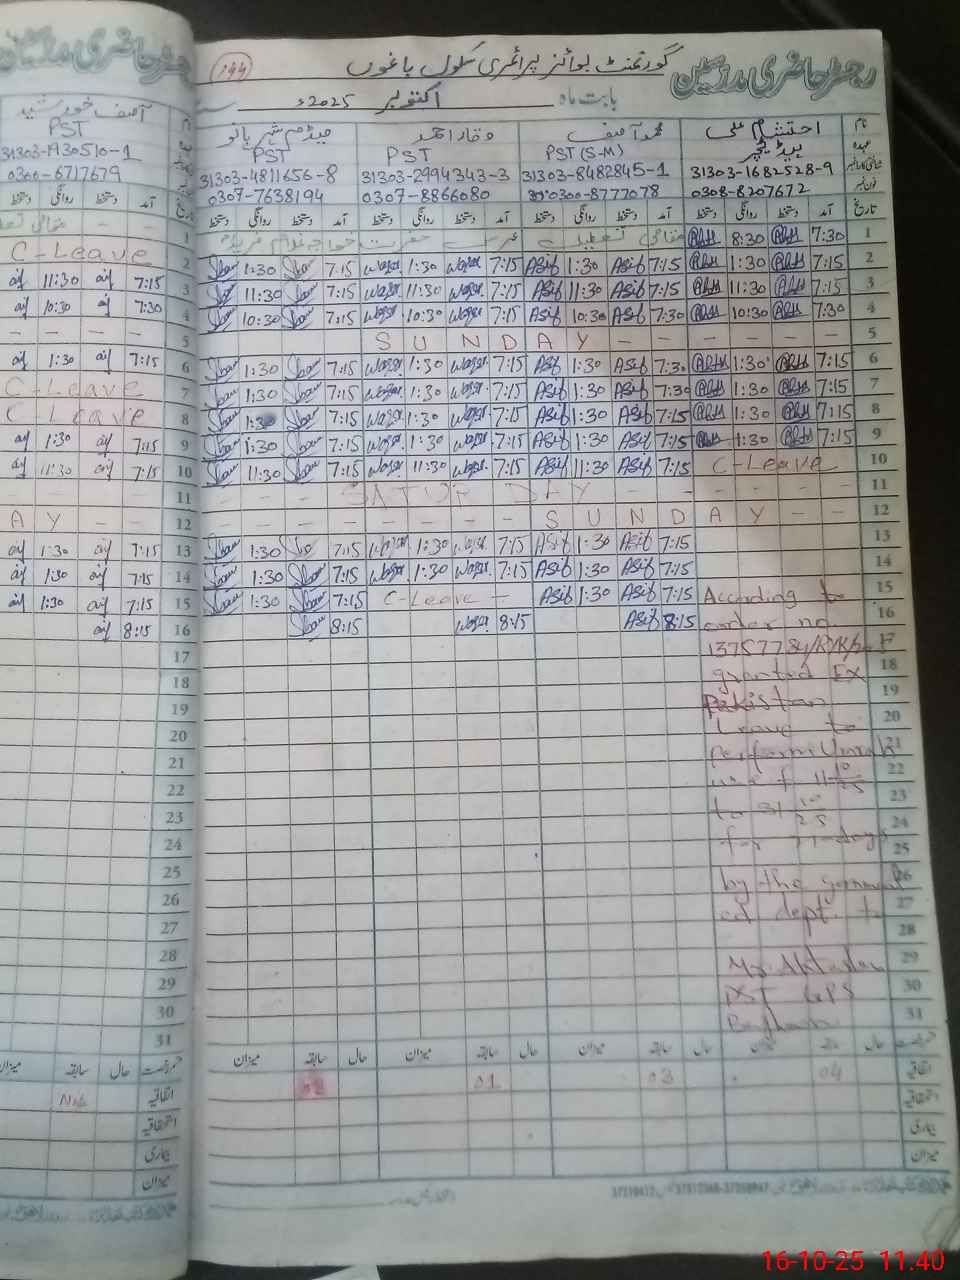 رجسٹر حاضری مدرسین
گورنمنٹ بوائز پرائمری سکول باغوں
144
بابت ماہ اکتوبر 2025ء
نام احتشام علی محمد آصف وقار احمد میڈم شہر بانو
عہدہ ہیڈ ٹیچر PST (S-M) PST PST
31303-1682528-9 31303-8482845-1 31303-2994343-3 31303-4811656-8
فون نمبر 0308-8207672 0300-8777078 0307-8866080 0307-7638194
تاریخ آمد دستخط روانگی دستخط آمد دستخط روانگی دستخط آمد دستخط روانگی دستخط آمد دستخط روانگی دستخط
1 7:30 8:30 مقامی تعطیل عرس حضرت خواجہ غلام فرید
2 7:15 1:30 7:15 Asif 1:30 Asif 7:15 Waqar 1:30 Waqar 7:15 1:30
3 7:15 11:30 7:15 Asif 11:30 Asif 7:15 Waqar 11:30 Waqar 7:15 11:30
4 7:30 10:30 7:30 Asif 10:30 Asif 7:15 Waqar 10:30 Waqar 7:15 10:30
5 S U N D A Y - - - - -
6 7:15 1:30 7:30 Asif 1:30 Asif 7:15 Waqar 1:30 Waqar 7:15 1:30
7 7:15 1:30 7:30 Asif 1:30 Asif 7:15 Waqar 1:30 Waqar 7:15 1:30
8 7:15 1:30 7:15 Asif 1:30 Asif 7:15 Waqar 1:30 Waqar 7:15 1:30
9 7:15 1:30 7:15 Asif 1:30 Asif 7:15 Waqar 1:30 Waqar 7:15 1:30
10 C-Leave 7:15 Asif 11:30 Asif 7:15 Waqar 11:30 Waqar 7:15 11:30
11 - - - SATUR DAY - - - - - - -
12 - - - - - - - - S U N D A Y - -
13 7:15 Asif 1:30 Asif 7:15 Waqar 1:30 Waqar 7:15 1:30
14 7:15 Asif 1:30 Asif 7:15 Waqar 1:30 Waqar 7:15 1:30
15 7:15 Asif 1:30 Asif C-Leave - 7:15 1:30
16 8:15 Asif 8:15 Waqar 8:15
17
18
19
20
21
22
23
24
25
26
27
28
29
30
31
According to
order no.
granted EX
Pakistan
Leave to
perform Umrah
w.e.f 11 10/25
to 31 10/25
for 21-days
by the
ed dept. to
Mr.
PST GPS
حال سابقہ میزان حال سابقہ میزان حال سابقہ میزان حال سابقہ میزان
اتفاقیہ 04 03 01 02
استحقاقیہ
بیماری
میزان
رجسٹر حاضری مدرسین
نام آصف خورشید
PST
31303-1930510-1
0300-6717679
تاریخ آمد دستخط روانگی دستخط
1 - - مقامی
2 C-Leave
3 7:15 11:30
4 7:30 10:30
5 - - - -
6 7:15 1:30
7 C-Leave
8 C-Leave
9 7:15 1:30
10 7:15 11:30
11 - - - -
12 A Y - -
13 7:15 1:30
14 7:15 1:30
15 7:15 1:30
16 8:15
17
18
19
20
21
22
23
24
25
26
27
28
29
30
31
رخصت حال سابقہ میزان
اتفاقیہ Nil
استحقاقیہ
بیماری
میزان
16-10-25 11:40